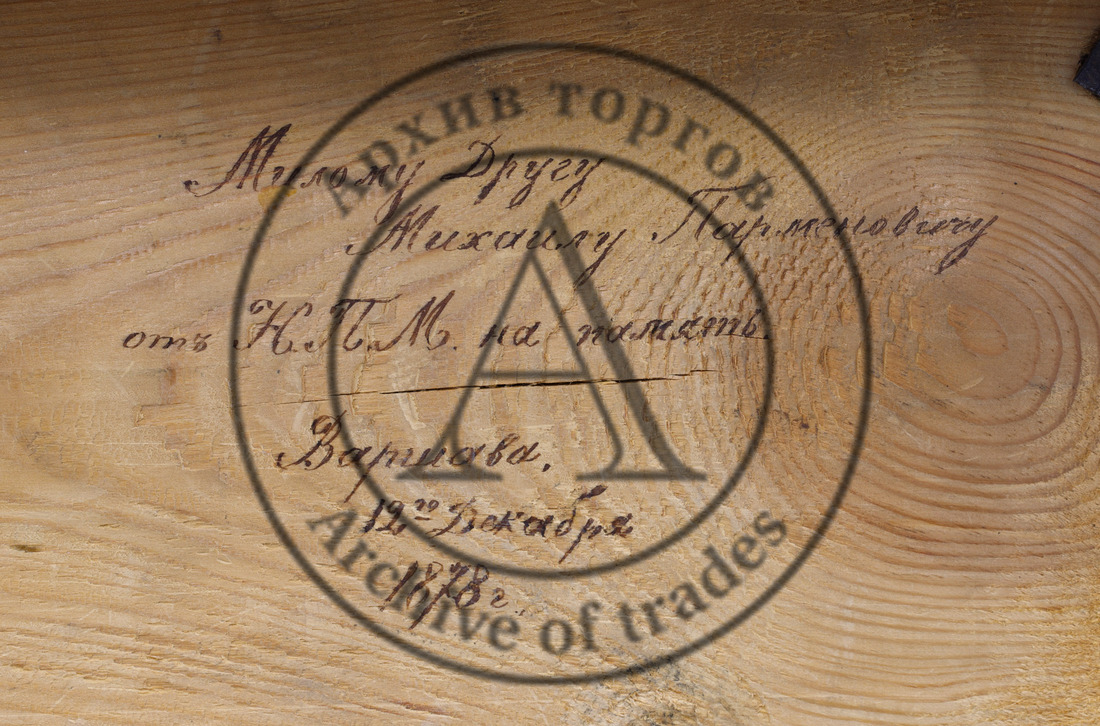 Милому Другу
Михаилу Парменовичу
отъ Н.П.М. на память.
Варшава,
12го Декабря
1878 г.
Архив торгов
А
Archive of trades